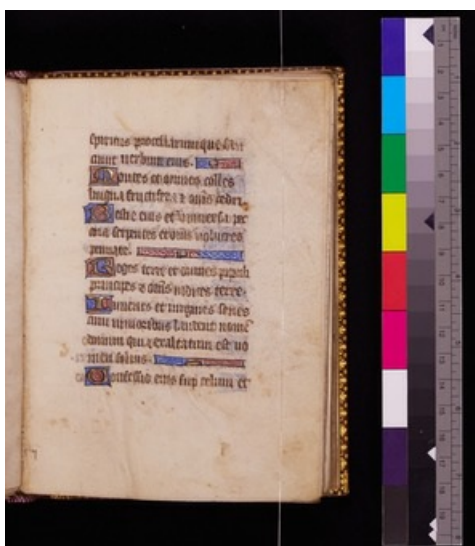 spiritus procellarum que faci
unt verbum eius.
Montes et omnes colles
ligna fructifera ⁊ omes cedri.
Bestie et universa pec
ora serpentes et volucres
pennate.
Reges terre et omnes populi
principes ⁊ omes iudices terre.
Iuvenes et virgines senes
cum iunioribus laudent nome
domini quia exaltatum est no
men solius.
Confessio eius sup celum et